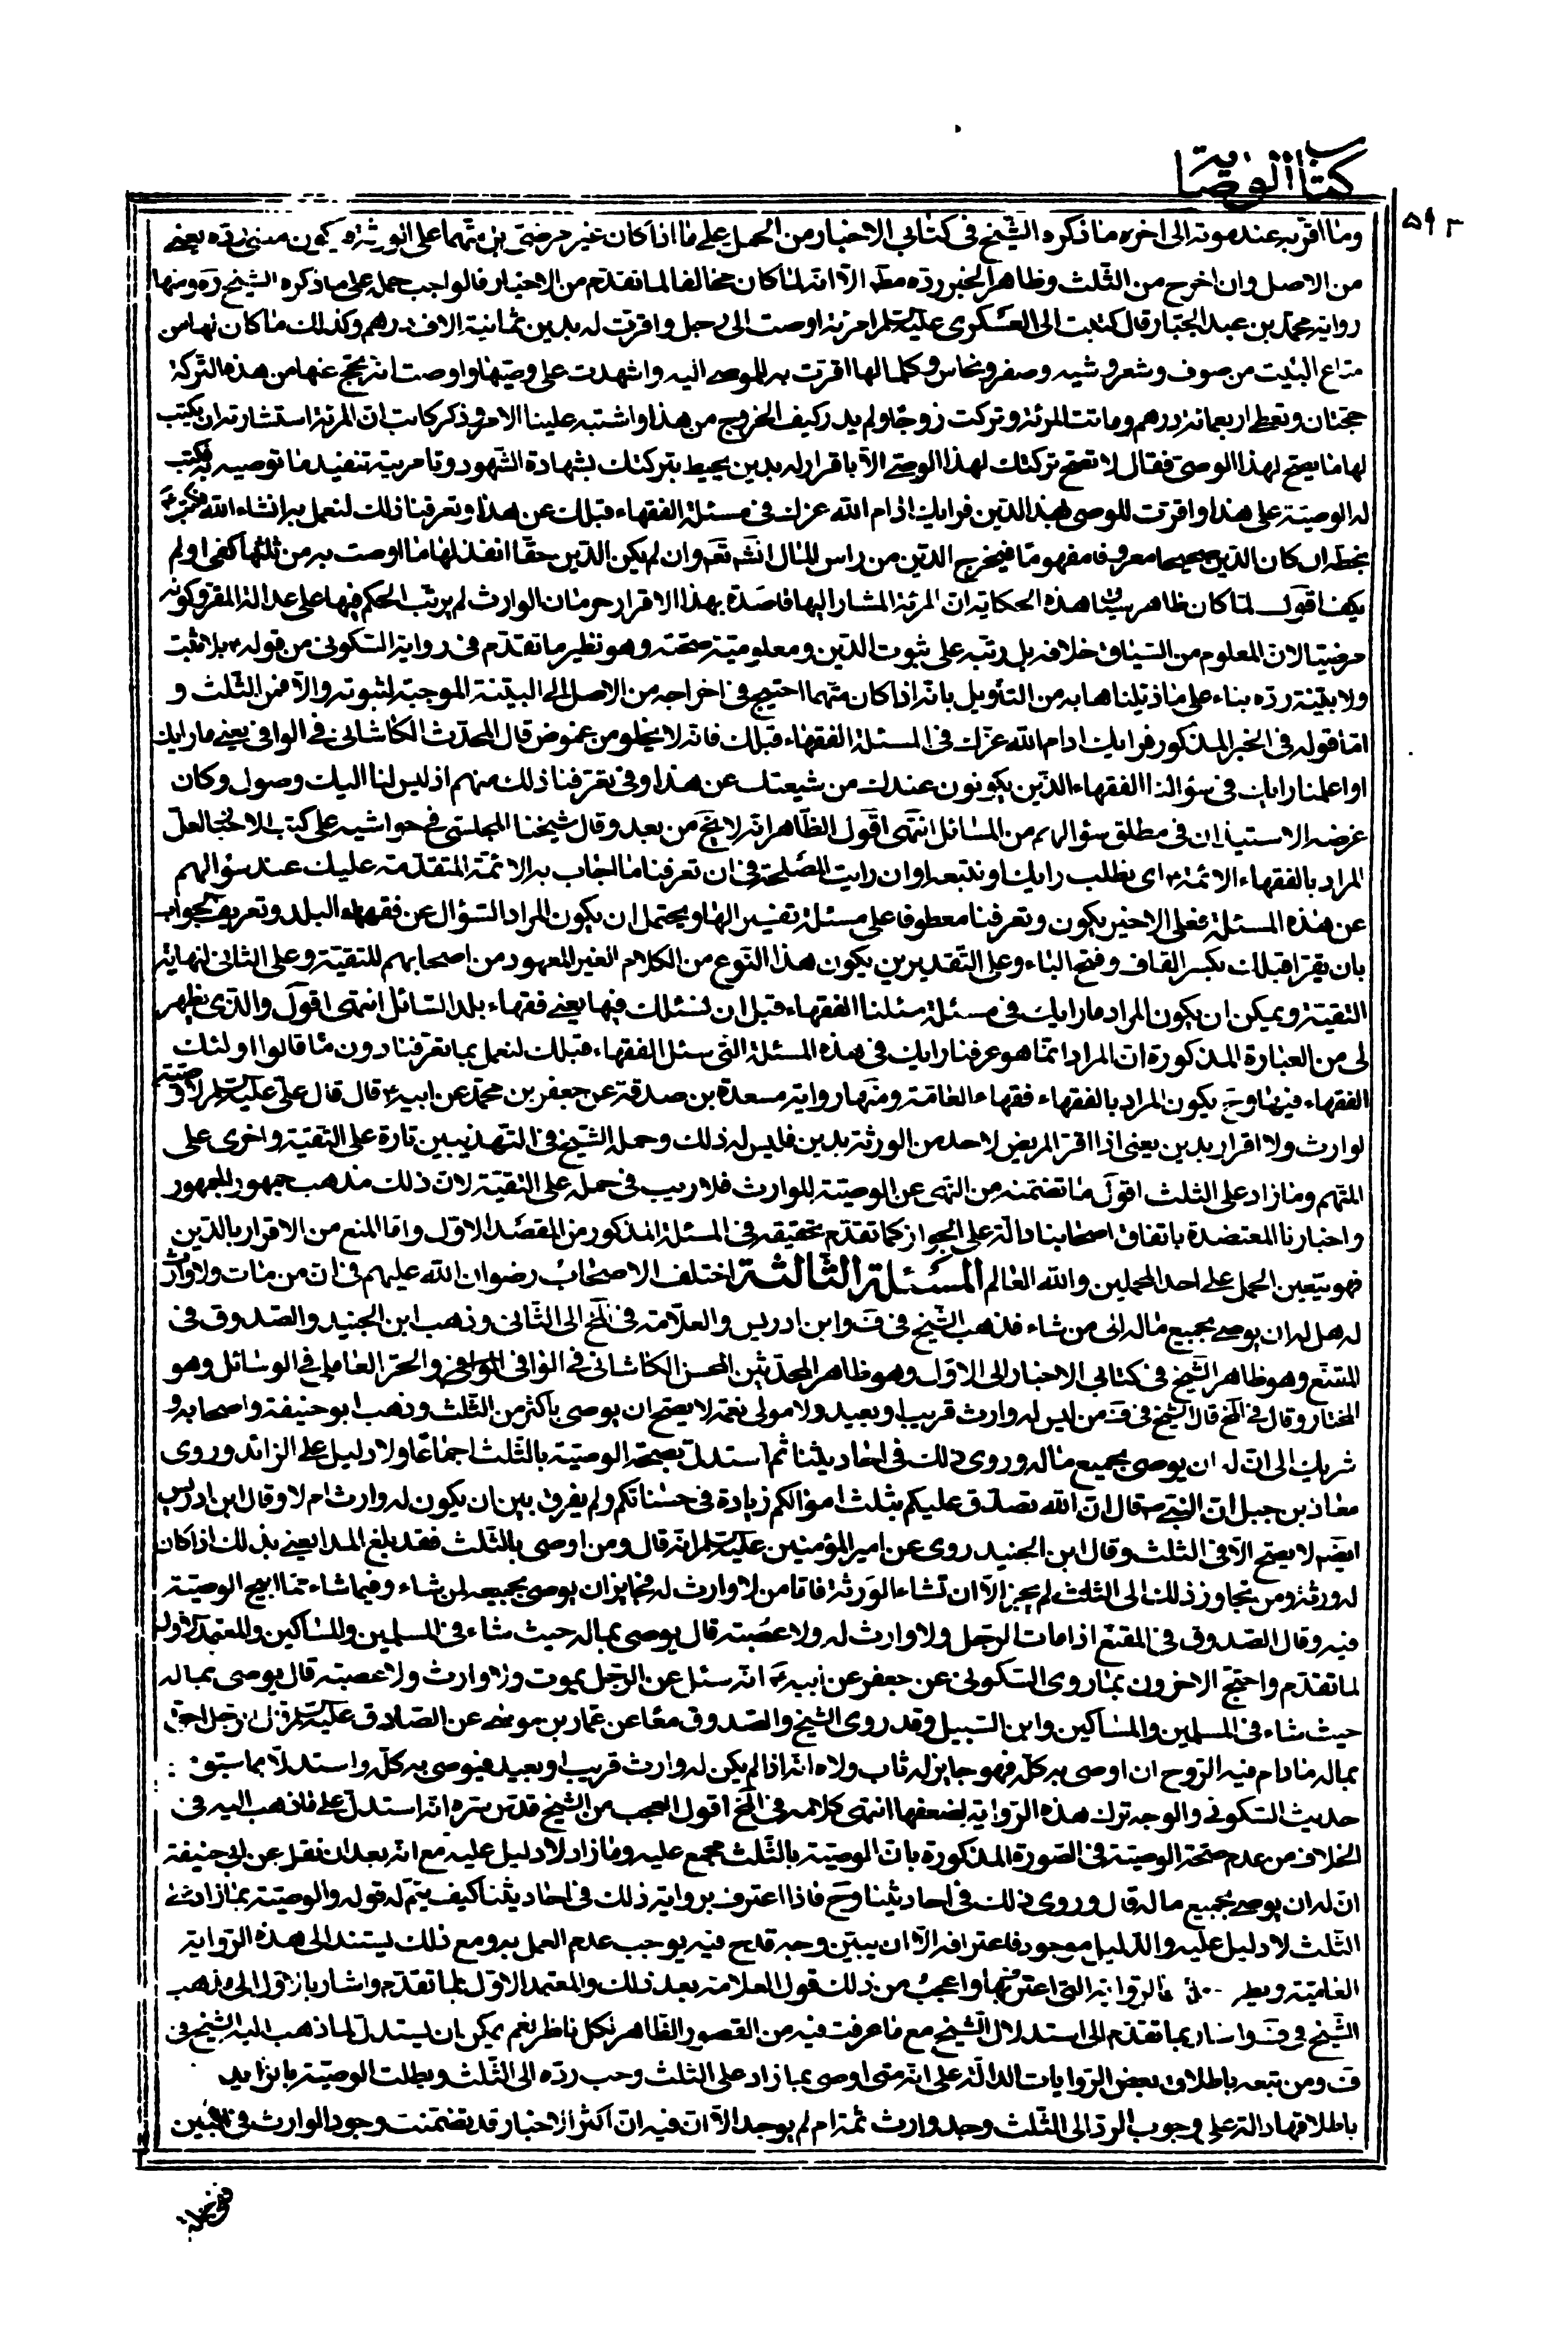 كتاب الوصايا
۵۹۳
وما اقر به عند موته الى اخره ما ذكره الشيخ في كتابي الاخبار من الحمل على ما اذا كان غير مرضي بل متهما على الورثة فيكون معنى رده يعني
من الاصل وان اخرج من الثلث وظاهر الخبر رده مط الا انه لما كان مخالفا لما تقدم من الاخبار فالواجب حمله على ما ذكره الشيخ ره ومنها
رواية محمد بن عبد الجبار قال كتبت الى العسكري عليه السلم امرئة اوصت الى رجل واقرت له بدين ثمانية الاف درهم وكذلك ما كان لها من
متاع البيت من صوف وشعر وشبه وصفر ونحاس وكلما لها اقرت به للموصى اليه واشهدت على وصيتها واوصت ان يحج عنها من هذه التركة
حجتان وتعطى اربعمائة درهم وماتت المرئة وتركت زوجا ولم يدر كيف الخروج من هذا واشتبه علينا الامر وذكر كاتب ان المرئة استشارته ان يكتب
لها ما يصح لهذا الوصي فقال لا تصح تركتك لهذا الوصي الا باقرار له بدين يحيط بتركتك بشهادة الشهود وتامريه تنفيذ ما توصيه به فكتب
له الوصية على هذا واقرت للوصي بهذا الدين فرايك ادام الله عزك في مسئلة الفقهاء قبلك عن هذا وتعرفنا ذلك لنعمل به انشاء الله فكتب ع
بخطه ان كان الدين صحيحا معروفا مفهوما فيخرج الدين من راس المال انشم تعم وان لم يكن الدين حقا انفذ لها ما اوصت به من ثلثها كفى او لم
يكف اقول لما كان ظاهر سياق هذه الحكاية ان المرئة المشار اليها قاصدة بهذا الاقرار حرمان الوارث لم يرتب الحكم فيها على عدالة المقر وكونه
مرضيا لان المعلوم من السياق خلافه بل رتبه على ثبوت الدين ومعلومية صحته وهو نظير ما تقدم في رواية السكوني من قوله ع بلا ثبت
ولا بينة رده بناء على ما ذيلناها به من التاويل بانه اذا كان متهما احتيج في اخراجه من الاصل الى البينة الموجبة لثبوته والا فمن الثلث و
اما قوله في الخبر المذكور فرايك ادام الله عزك في المسئلة الفقهاء قبلك فانه لا يخلو من غموض قال المحدث الكاشاني في الوافي يعني ما رايك
او اعلمنا رايك في سؤالنا الفقهاء الذين يكونون عندك من شيعتك عن هذا وفي تعرفنا ذلك منهم اذ ليس لنا اليك وصول وكان
غرضه الاستيذان في مطلق سؤالهم من المسائل انتهى اقول الظاهر انه لا يخ من بعد وقال شيخنا المجلسي في حواشيه على كتب الاخبار لعل
المراد بالفقهاء الائمة ع اي نطلب رايك او نتبعه او ان رايت المصلحة في ان تعرفنا ما اجاب به الائمة المتقدمة عليك عند سؤالهم
عن هذه المسئلة فعلى الاخير يكون وتعرفنا معطوفا على مسئلة تفسير الها ويحتمل ان يكون المراد السؤال عن فقهاء البلد وتعريف الجواب
بان يقرا قبلك بكسر القاف وفتح الباء وعلى التقديرين يكون هذا النوع من الكلام الغير المعهود من اصحابهم للتقية وعلى الثاني لنهاية
التقية ويمكن ان يكون المراد ما رايك في مسئلة سئلنا الفقهاء قبل ان نسئلك فيها يعني فقهاء بلد السائل انتهى اقول والذي يظهر
لي من العبارة المذكورة ان المراد انما هو عرفنا رايك في هذه المسئلة التي سئل الفقهاء قبلك لنعمل بما تعرفنا دون ما قالوا اولئك
الفقهاء فيها وح يكون المراد بالفقهاء فقهاء العامة ومنها رواية مسعدة بن صدقة عن جعفر بن محمد عن ابيه ع قال قال علي عليه السلم لا وصية
لوارث ولا اقرار بدين يعني اذا اقر المريض لاحد من الورثة بدين فليس له ذلك وحمله الشيخ في التهذيبين تارة على التقية واخرى على
المتهم وما زاد على الثلث اقول ما تضمنه من النهي عن الوصية للوارث فلا ريب في حمله على التقية لان ذلك مذهب جمهور الجمهور
واخبارنا المعتضدة باتفاق اصحابنا دالة على الجواز كما تقدم تحقيقه في المسئلة المذكور من المقصد الاول واما المنع من الاقرار بالدين
فهو يتعين الحمل على احد المحملين والله العالم المسئلة الثالثة اختلف الاصحاب رضوان الله عليهم في ان من مات ولا وارث
له هل له ان يوصي بجميع ماله الى من شاء فذهب الشيخ في ف وابن ادريس والعلامة في لخ الى الثاني وذهب ابن الجنيد والصدوق في
المقنع وهو ظاهر الشيخ في كتابي الاخبار الى الاول وهو ظاهر المحدثين المحسن الكاشاني في الوافي والحر العاملي في الوسائل وهو
المختار وقال في لخ قال الشيخ في ف من ليس له وارث قريب او بعيد ولا مولى نعمة لا يصح ان يوصي باكثر من الثلث وذهب ابو حنيفة واصحابه و
شريك الى ان له ان يوصي بجميع ماله وروي ذلك في احاديثنا ثم استدل بصحة الوصية بالثلث اجماعا ولا دليل على الزائد وروى
معاذ بن جبل ان النبي ص قال ان الله تصدق عليكم بثلث اموالكم زيادة في حسناتكم ولم يفرق بين ان يكون له وارث ام لا وقال ابن ادريس
ايضم لا يصح الا في الثلث وقال ابن الجنيد روي عن امير المؤمنين عليه السلم انه قال ومن اوصى بالثلث فقد بلغ المدا يعني بذلك اذا كان
له ورثة ومن تجاوز ذلك الى الثلث لم يجز الا ان تشاء الورثة فاما من لا وارث له فجايز ان يوصي بجميعه لمن شاء وفيما شاء مما ابيح الوصية
فيه وقال الصدوق في المقنع اذا مات الرجل ولا وارث له ولا عصبة قال يوصي بماله حيث شاء في المسلمين والمساكين والمعتمد الاول
لما تقدم واحتج الاخرون بما روى السكوني عن جعفر عن ابيه ع انه سئل عن الرجل يموت ولا وارث ولا عصبة قال يوصي بماله
حيث شاء في المسلمين والمساكين وابن السبيل وقد روى الشيخ والصدوق معا عن عمار بن موسى عن الصادق عليه السلم قال الرجل احق
بماله ما دام فيه الروح ان اوصى به كله فهو جايز له ثاب ولاه انه اذا لم يكن له وارث قريب او بعيد فيوصي به كله واستدلا بما سبق :
حديث السكوني والوجه ترك هذه الرواية لضعفها انتهى كلامه في لخ اقول العجب من الشيخ قدس سره انه استدل على ما ذهب اليه في
الخلاف من عدم صحة الوصية في الصورة المذكورة بان الوصية بالثلث مجمع عليه وما زاد لا دليل عليه مع انه بعد ان نقل عن ابي حنيفة
ان له ان يوصي بجميع ماله قال وروي ذلك في احاديثنا وح فاذا اعترف برواية ذلك في احاديثنا كيف يتم له قوله والوصية بما زاد على
الثلث لا دليل عليه والدليل موجود فاعترافه الا ان يبين وجه قدح فيه يوجب عدم العمل به ومع ذلك يستند الى هذه الرواية
العامية ويطرح الرواية التي اعترف بها واعجب من ذلك قول العلامة بعد ذلك والمعتمد الاول لما تقدم واشار بالاول الى مذهب
الشيخ في ف واشار بما تقدم الى استدلال الشيخ مع ما عرفت فيه من القصور الظاهر لكل ناظر نعم يمكن ان يستدل لما ذهب اليه الشيخ في
ف ومن تبعه باطلاق بعض الروايات الدالة على انه متى اوصى بما زاد على الثلث وجب رده الى الثلث وبطلت الوصية بالزايد
باطلاقها دالة على وجوب الرد الى الثلث وجد وارث ثمة ام لم يوجد الا ان فيه ان اكثر الاخبار قد تضمنت وجود الوارث في البين